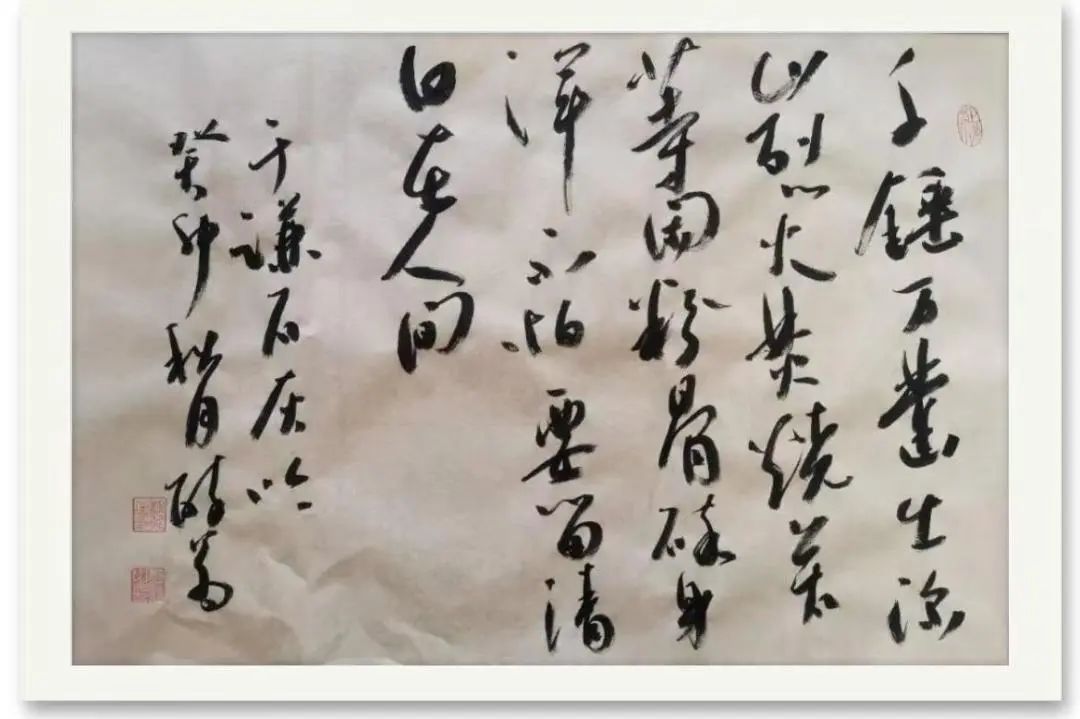 千錘万凿出深
山烈火焚燒若
等闲粉骨碎身
浑不怕要留清
白在人间
于谦石灰吟
癸卯秋月